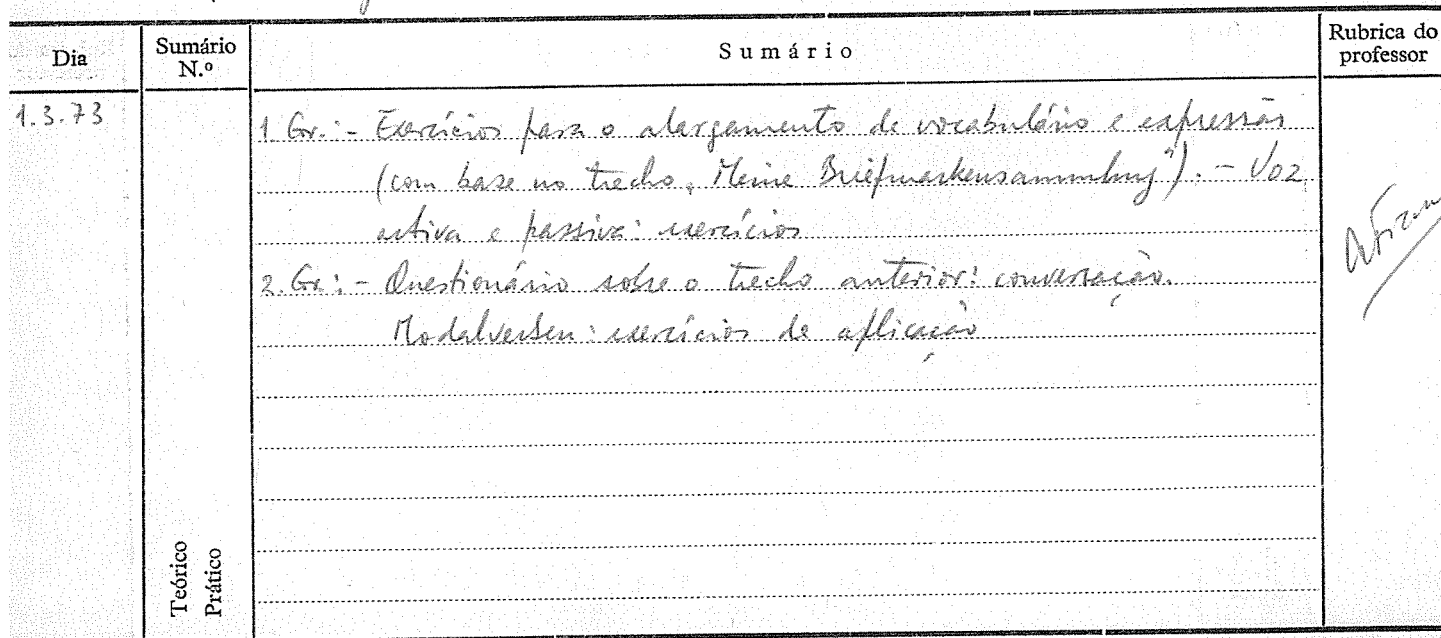 Dia Sumário N.º Sumário Rubrica do professor
1.3.73
1. Gr.: - Exercícios para o alargamento de vocabulário e expressão
(com base no trecho „Meine Briefmarkensammlung"). - Voz
activa e passiva: exercícios
2. Gr.: - Questionário sobre o trecho anterior: conversação.
Modalverben: exercícios de aplicação
Teórico
Prático